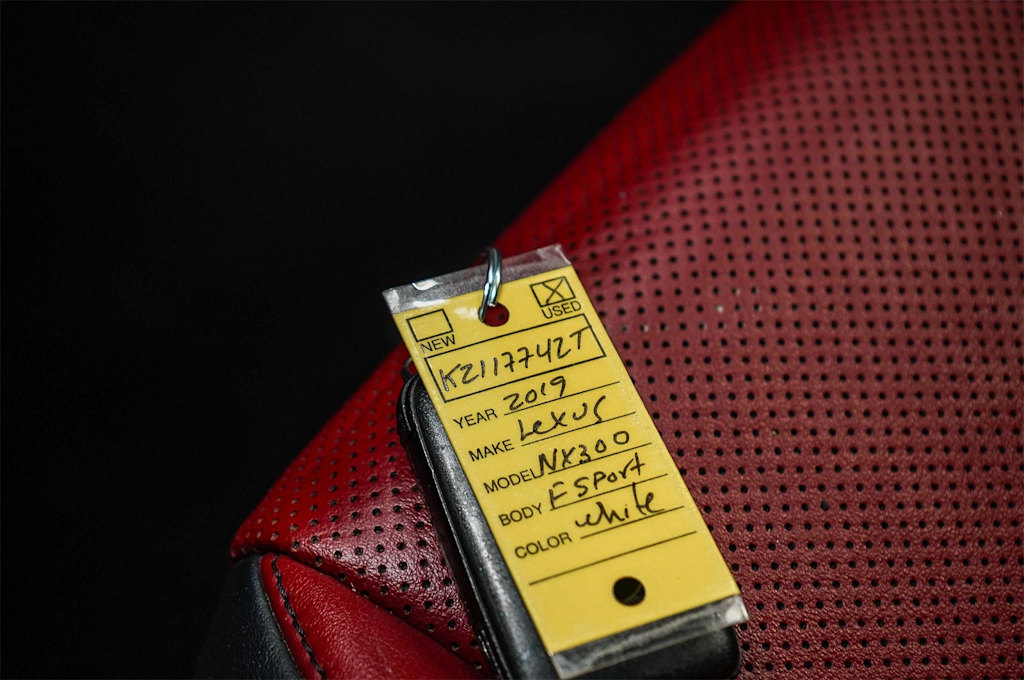 NEW USED
K2117742T
YEAR 2019
MAKE Lexus
MODEL NX300
BODY FSPort
COLOR white